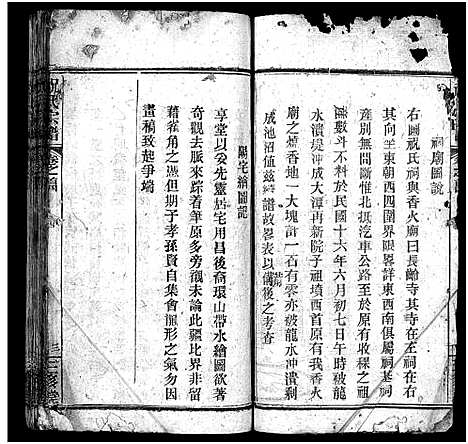 祠廟圖說
右圖祝氏祠與香火廟曰長餘寺其寺在左祠在右
其向王東朝西四圍界限畧詳東西南俱屬祠基祠
產別無間斷惟北抵汽車公路至於原有收糧之祖
區數斗不料於民國十六年六月初七日午時被龍
水漬堤冲成大潭再新院子祖墳西首原有我香火
廟之燈香地一大塊計一百有零亦被龍水冲潰剩
成池沼值兹譜故畧表以備後之考查
陽宅繪圖說
享堂以妥先靈居宅用昌後裔環山帶水繪圖欲著
奇觀去脈來踪着筆原多旁襯未論此疆彼界非留
藉雀角之憑但期子孝孫賢自集會佩形之氣勿因
畫稿致起爭端
祝氏宗譜
卷之